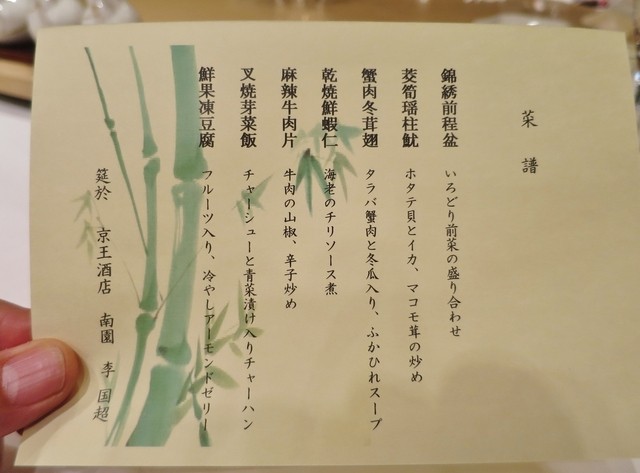 菜譜
錦綉前程盆 いろどり前菜の盛り合わせ
茭筍瑶柱魷 ホタテ貝とイカ、マコモ茸の炒め
蟹肉冬茸翅 タラバ蟹肉と冬瓜入り、ふかひれスープ
乾焼鮮蝦仁 海老のチリソース煮
麻辣牛肉片 牛肉の山椒、辛子炒め
叉焼芽菜飯 チャーシューと青菜漬け入りチャーハン
鮮果凍豆腐 フルーツ入り、冷やしアーモンドゼリー
筵於 京王酒店 南園 李国超